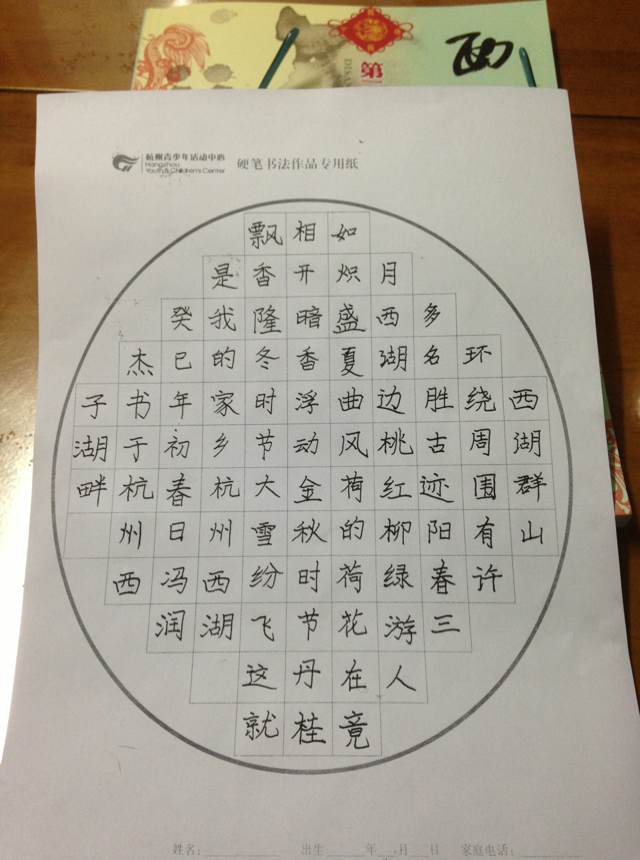 西
第
杭州青少年活动中心
Hangzhou
Youth & Children's Center
硬笔书法作品专用纸
西湖群山
环绕周围有许
多名胜古迹阳春三
月西湖边桃红柳绿游人
如炽盛夏曲风荷的荷花在竟
相开暗香浮动金秋时节丹桂
飘香隆冬时节大雪纷飞这就
是我的家乡杭州西湖
癸巳年初春日冯润
杰书于杭州西
子湖畔
姓名: 出生 年 月 日 家庭电话: